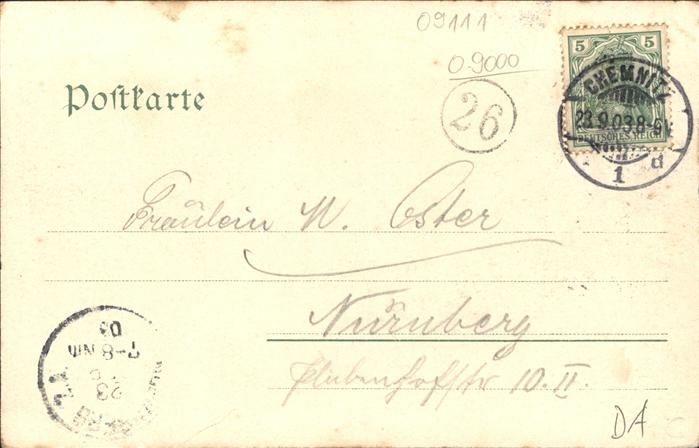 09111
0.9000
Postkarte
26
5 5
DEUTSCHES REICH
CHEMNITZ
23.9.03.8-9V
1 d
Fräulein M. Oster
Nürnberg
10. II.
03
7-8 NM
23
DA